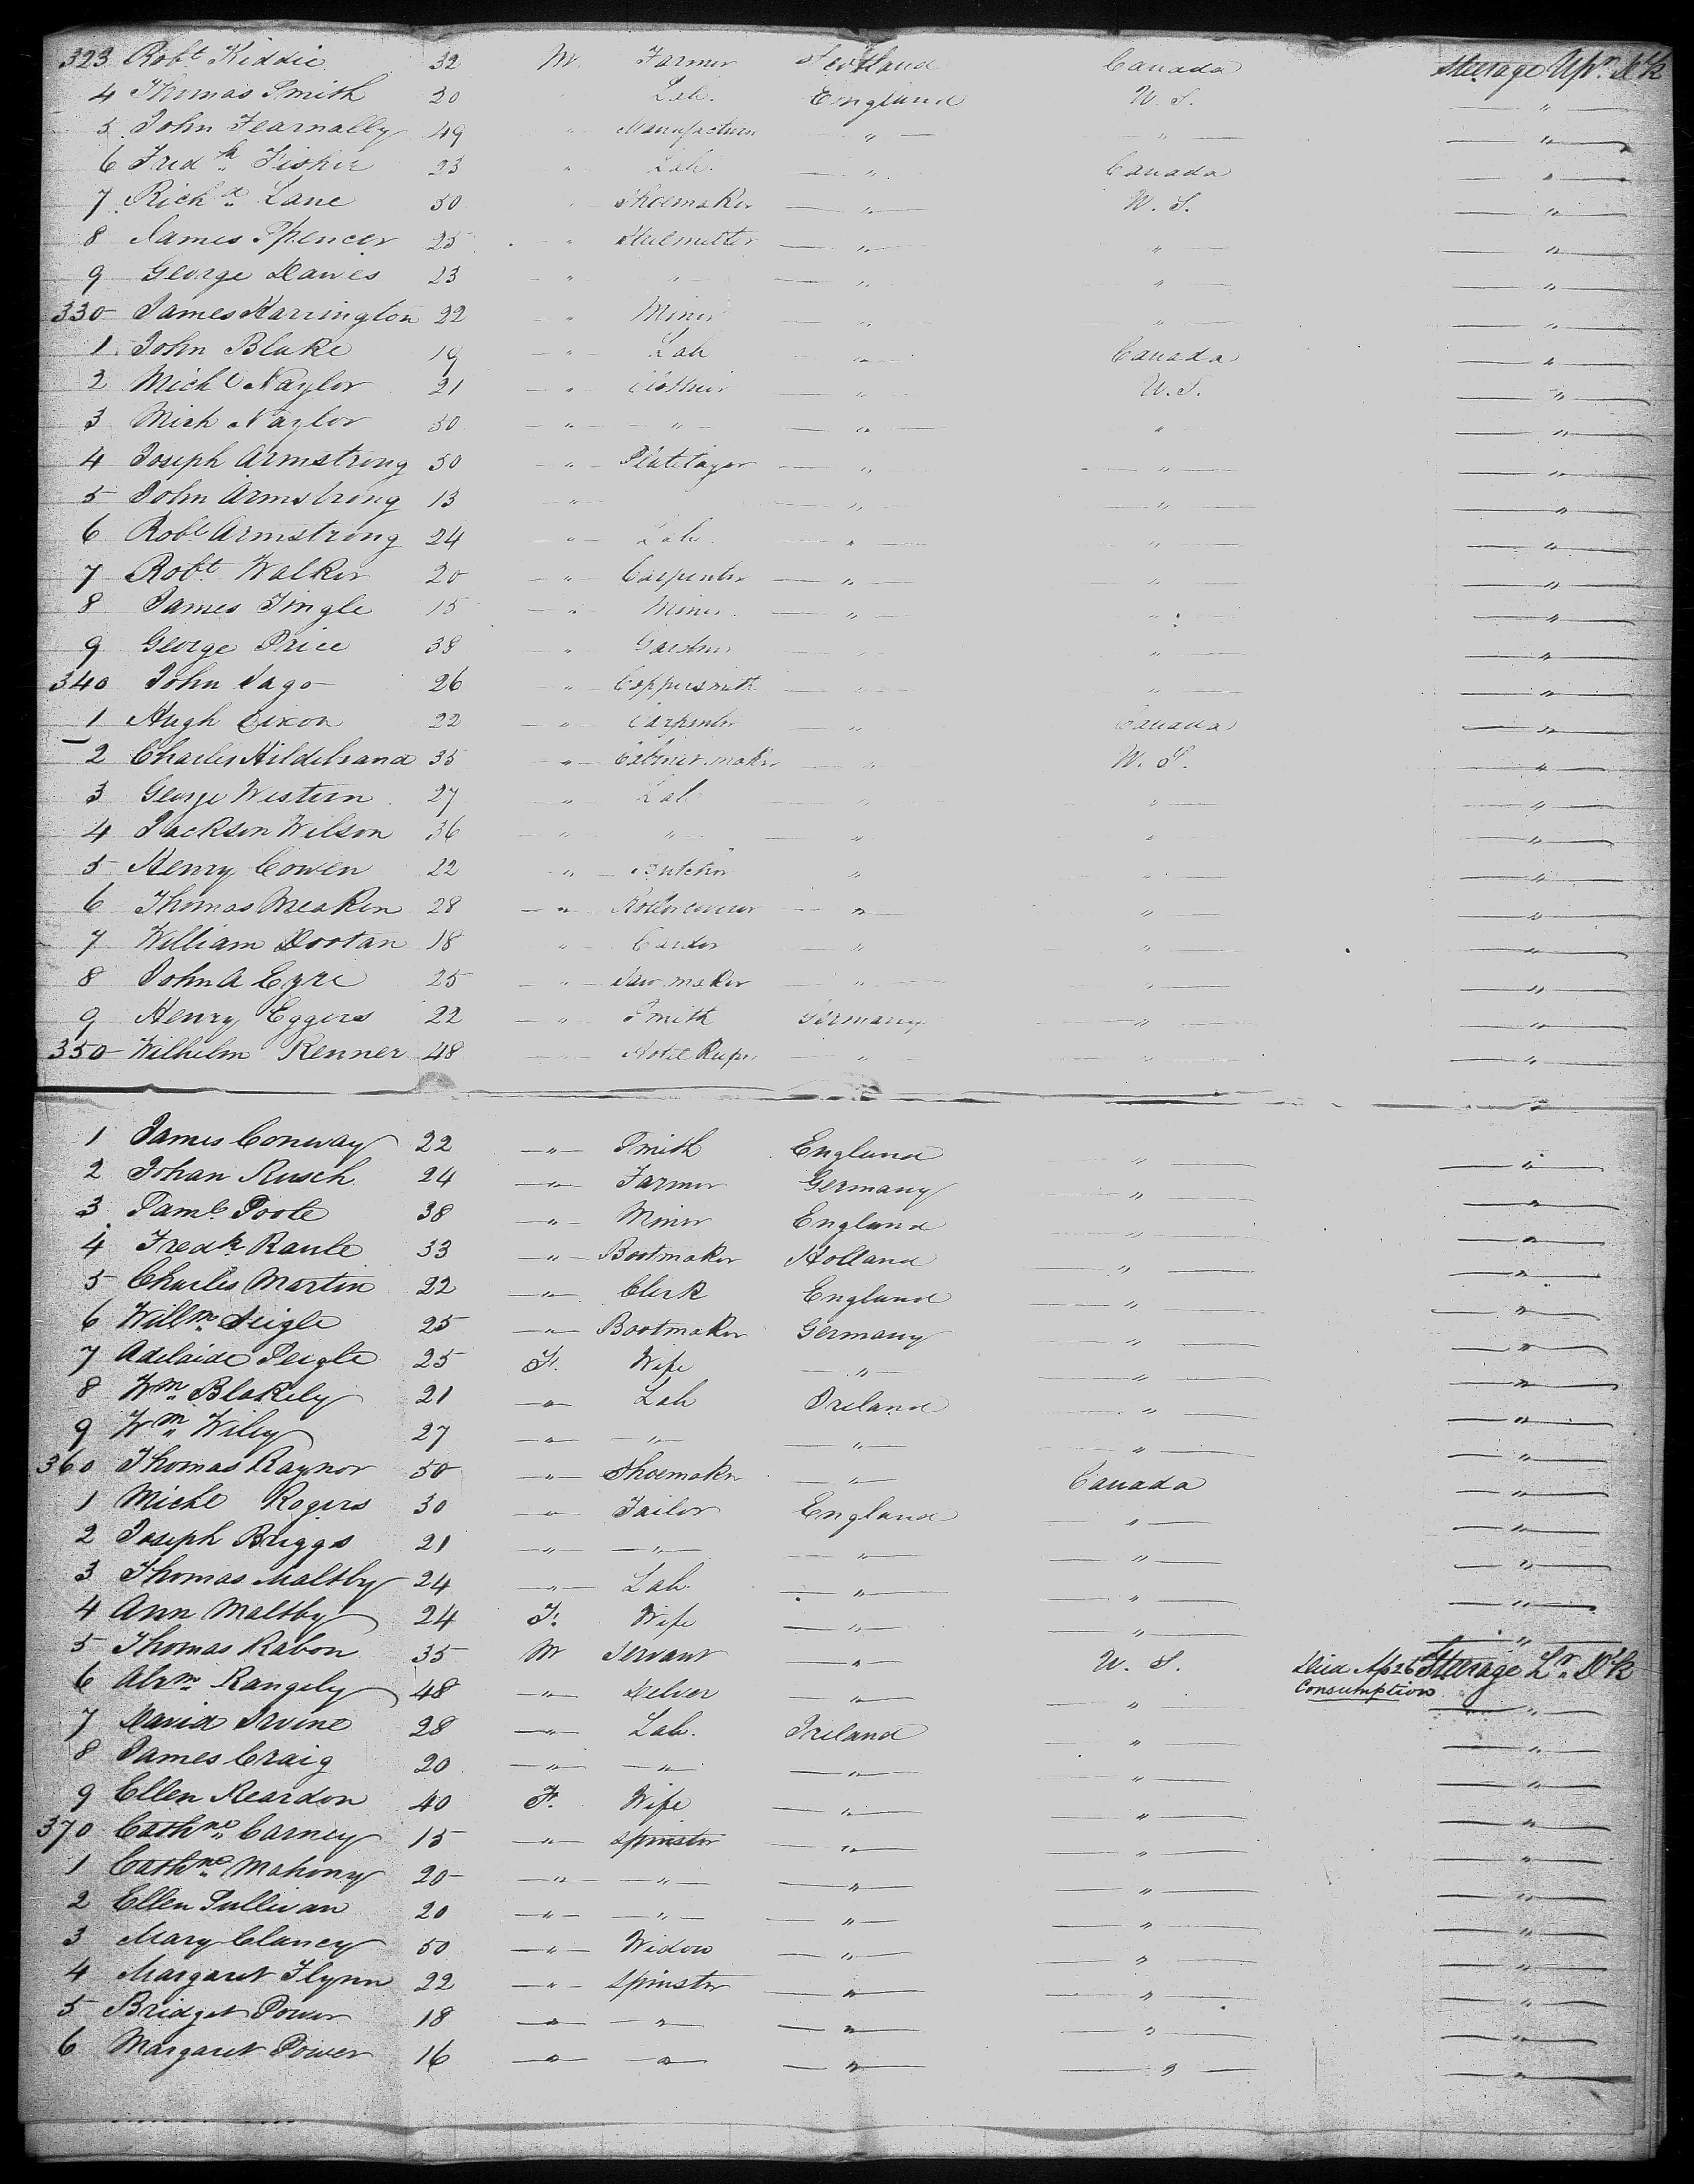 323 Robt Kiddie 32 M. Farmer Scotland Canada Steerage Upr Dk
4 Thomas Smith 20 Lab. England U.S. "
5 John Fearnally 49 " Manufacturer " " "
6 Fredk Fisher 23 " Lab. " Canada "
7 Richd Lane 50 " Shoemaker " U.S. "
8 James Spencer 25 " " " "
9 George Davies 23 " " " " "
330 James Harrington 22 " Miner " " "
1 John Blake 19 " Lab " Canada "
2 Michl Naylor 21 " Clothier " U.S. "
3 Mich Naylor 50 " " " " "
4 Joseph Armstrong 50 " Platelayer " " "
5 John Armstrong 13 " " " "
6 Robt Armstrong 24 " Lab. " " "
7 Robt Walker 20 " Carpenter " " "
8 James Tingle 15 " Miner " " "
9 George Price 38 " Gardner " " "
340 John Jago 26 " Coppersmith " " "
1 Hugh Dixon 22 " Carpenter " Canada "
2 Charles Hildebrand 35 " Cabinet maker " U.S. "
3 George Western 27 " Lab " " "
4 Jackson Wilson 36 " " " " "
5 Henry Cowen 22 " Butcher " " "
6 Thomas Meakin 28 " Roller coverer " " "
7 William Dootan 18 " Carder " " "
8 John A Eyre 25 " Saw maker " " "
9 Henry Eggers 22 " Smith Germany " "
350 Wilhelm Renner 48 Hotel Kepr " " "
1 James Conway 22 " Smith England " "
2 Johan Rusch 24 " Farmer Germany " "
3 Saml Poole 38 " Miner England " "
4 Fredk Raule 33 " Bootmaker Holland " "
5 Charles Martin 22 " Clerk England " "
6 Willm Seigle 25 " Bootmaker Germany " "
7 Adelaide Seigle 25 F. Wife " " "
8 Wm Blakely 21 " Lab Ireland " "
9 Wm Wiley 27 " " " " "
360 Thomas Raynor 50 " Shoemaker " Canada "
1 Michl Rogers 30 " Tailor England " "
2 Joseph Briggs 21 " " " " "
3 Thomas Maltby 24 " Lab. " " "
4 Ann Maltby 24 F. Wife " " "
5 Thomas Rabon 35 M Servant " U.S. Died Ap 26 Steerage Lr Dk
Consumption
6 Abrm Rangely 48 " Delver " " "
7 David Irvine 28 " Lab. Ireland " "
8 James Craig 20 " " " " "
9 Ellen Reardon 40 F. Wife " " "
370 Cathne Carney 15 " Spinster " " "
1 Cathne Mahony 20 " " " " "
2 Ellen Sullivan 20 " " " " "
3 Mary Clancy 50 " Widow " " "
4 Margaret Flynn 22 " Spinster " " "
5 Bridget Power 18 " " " " "
6 Margaret Power 16 " " " " "